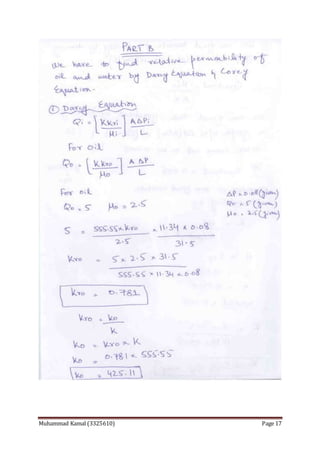 PART B
We have to find relative permeability of
oil and water by Darcy Equation & Corey
Equation.
① Darcy Equation
Qi = [KKri / Mi] AΔPi / L
For oil
Qo = [KKro / Mo] A ΔP / L
For oil
ΔP = 0.08 (given)
Qo = 5 Mo = 2.5
Qo = 5 (given)
Mo = 2.5 (given)
5 = 555.55 x kro / 2.5 x 11.34 x 0.08 / 31.5
Kro = 5 x 2.5 x 31.5 / 555.55 x 11.34 x 0.08
Kro = 0.781
Kro = ko / k
Ko = Kro x K
Ko = 0.781 x 555.55
Ko = 425.11
Muhammad Kamal (3325610) Page 17